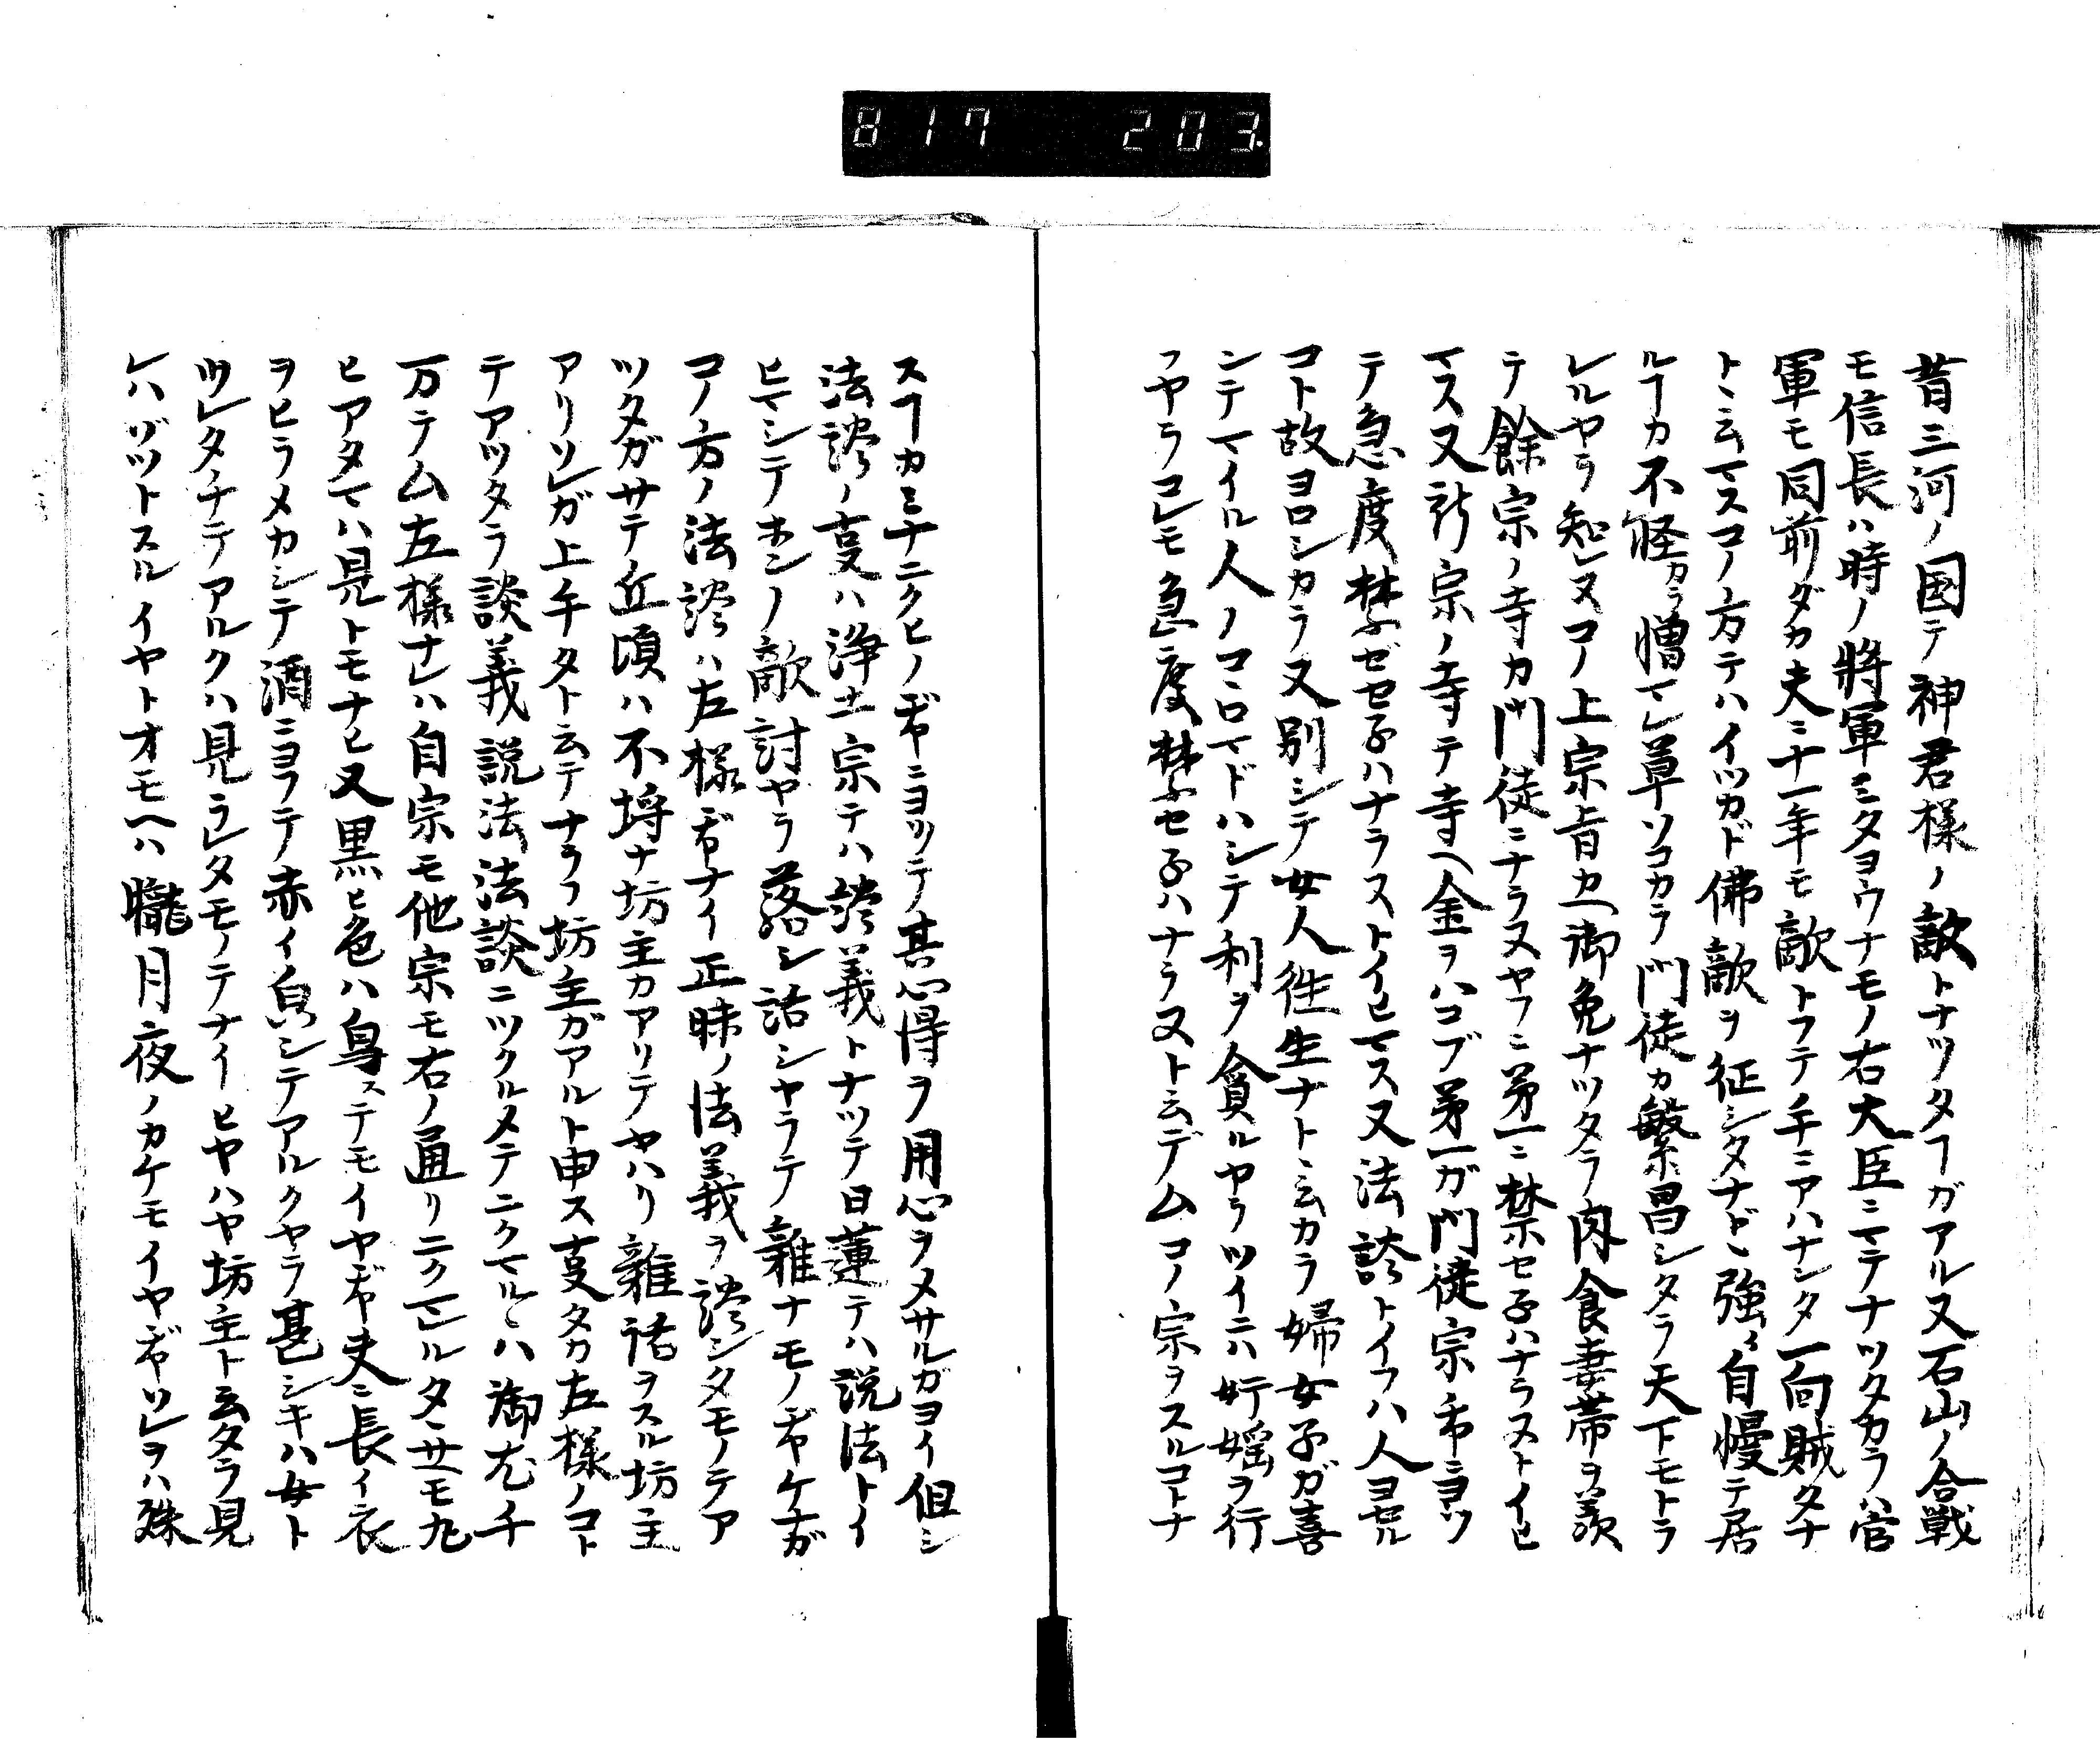 817 203.
昔三河ノ国テ神君様ノ敵トナツタヿガアル又石山ノ合戦
モ信長ハ時ノ将軍ミタヨウナモノ右大臣ニマテナツタカラハ官
軍モ同前ダカ夫ニ十一年モ敵トフテ手ミアハナシタ一向賊タナ
トヽ云マスコノ方テハイツカド佛敵ヲ征シタナドヽ強イ自慢テ居
ルヿカ不怪カラ憎マレ草ソコカラ門徒カ繁昌シタラ天下モトラ
レルヤラ知レヌコノ上宗旨カヘ御免ナツタラ肉食妻帯ヲ羨
テ餘宗ノ寺カ門徒ニナラヌヤフニ第一ニ禁セ子ハナラヌトイヒ
マス又新宗ノ寺テ寺ヘ金ヲハコブ第一ガ門徒宗希ニヨツ
テ急度禁ゼセ子ハナラストイヒマス又法談トイフハ人ヨセル
コト故ヨロシカラヌ別シテ女人往生ナトヽ云カラ婦女子ガ喜
ンテマイル人ノコヽロマドハシテ利ヲ貪ルヤラツイニハ奸婬ヲ行
フヤラコレモ急度禁セ子ハナラヌト云デムコノ宗ヲスルコトナ
スヿカミナニクヒノヂヤニヨツテ其心得ヲ用心ラメサルガヨイ但シ
法談ノ叓ハ浄土宗テハ談義トナツテ日蓮テハ説法トイ
ヒマシテホンノ敵討ヤラ落シ話シヤラテ雜ナモノヂヤケナガ
コノ方ノ法談ハ左様ヂヤナイ正味ノ法義ヲ談シタモノテア
ツタガサテ近頃ハ不埒ナ坊主カアリテヤハリ雜話ヲスル坊主
アリソレガ上手タト云テナラフ坊主ガアルト申ス叓タカ左様ノコト
テアツタラ談義説法法談ニツクルメテニクマルヽハ御尤千
万テム左様ナレハ自宗モ他宗モ右ノ通リニクマレルタニ云モ九
ヒアタマハ見トモナヒ又黒ヒ色ハ烏ステモイヤヂヤ夫ニ長イ衣
ヲヒラメカシテ酒ニヨフテ赤イ皃シテアルクヤラ甚シキハ女ト
ツレタノナテアルクハ見ラレタモノテナイヒヤハヤ坊主ト云タラ見
レハゾツトスルイヤトオモヘハ朧月夜ノカケモイヤヂヤソレヲハ殊